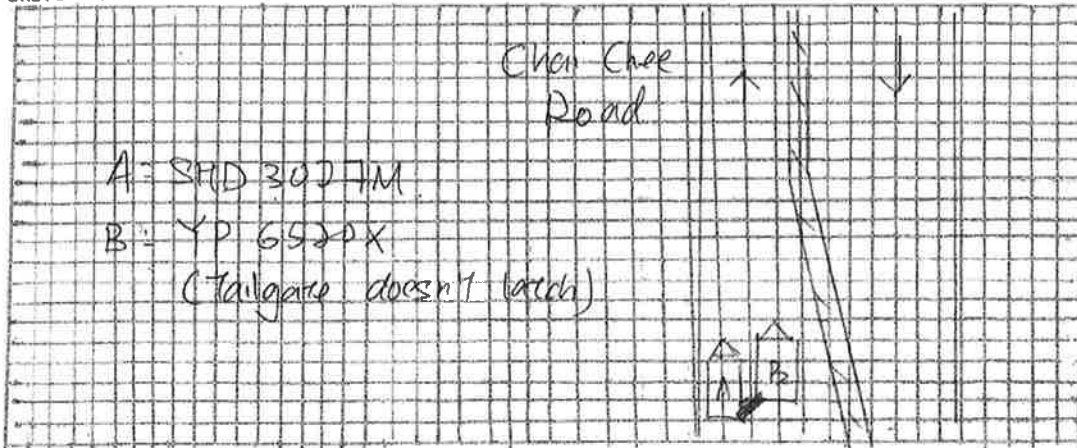 Chai Chee
Road
A = SHD 3027M
B = YP 6520X
(Tailgate doesn't latch)
A
B